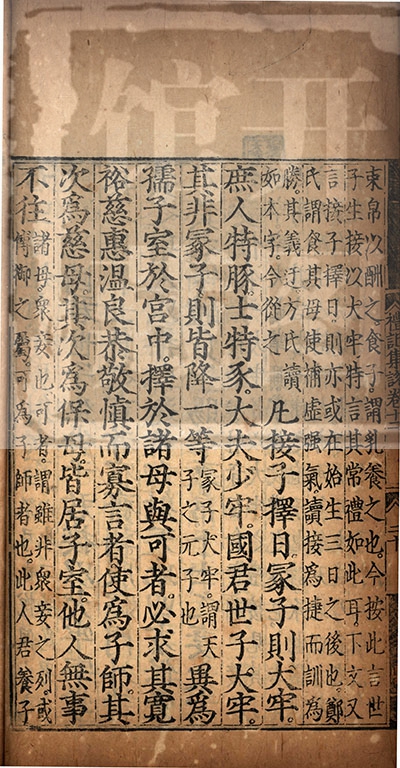 禮記集說卷十
東帛以酬之食子謂乳養之也今按此言世
子生接以大牢特言其常禮如此耳下文又
言接子擇日則亦或在始生三日之後也鄭
氏謂食其母使補虛强氣讀接為捷而訓為
勝其義迂方氏讀
如本字今從之
凡接子擇日。冢子則大牢。
庶人特豚。士特豕。大夫少牢。國君世子大牢。
其非冢子則皆降一等
冢子大牢。謂天
子之元子也
異為
孺子室於宮中。擇於諸母與可者。必求其寬
裕慈惠溫良恭敬慎而寡言者。使為子師。其
次為慈母。其次為保母。皆居子室。他人無事
不往
諸母。衆妾也。可者。謂雖非衆妾之列。或
傅御之屬。可為子師者也。此人君養子